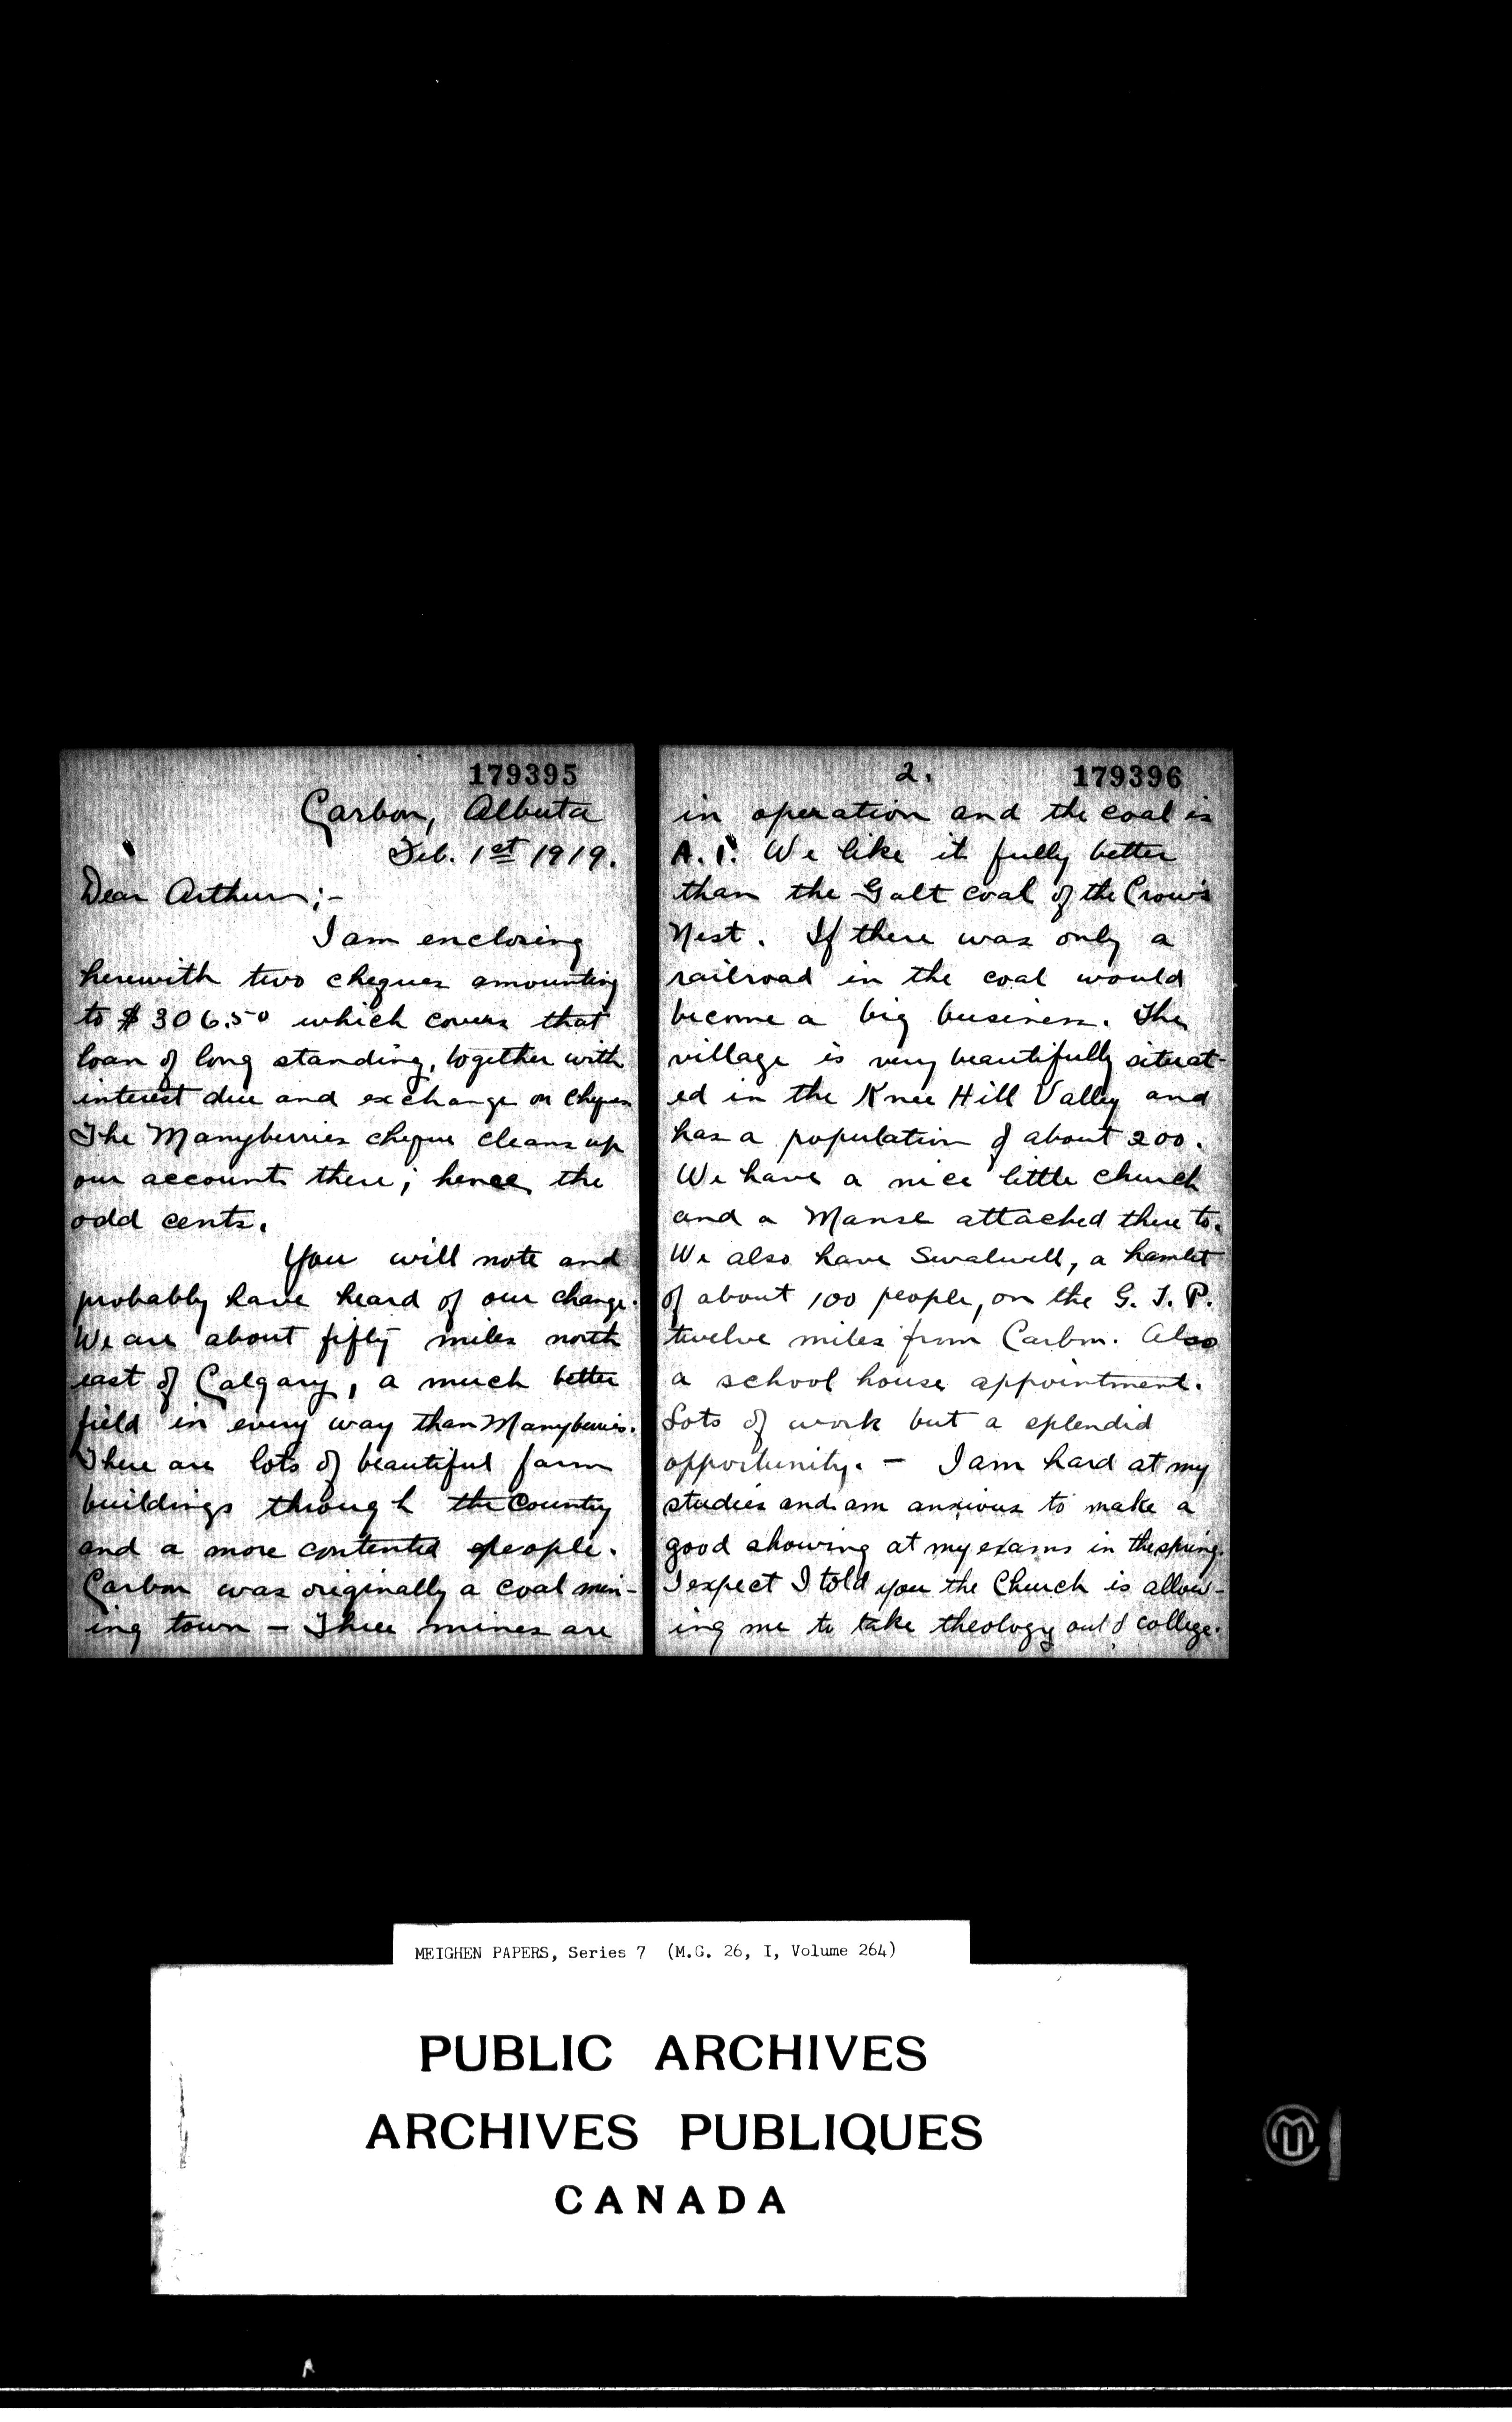 179395
Carbon, Alberta
Feb. 1st 1919.
Dear Arthur;-
I am enclosing
herewith two cheques amounting
to $306.50 which covers that
loan of long standing, together with
interest due and exchange on cheques
The Manyberries cheque cleans up
our accounts there; hence the
odd cents.
You will note and
probably have heard of our change.
We are about fifty miles north
east of Calgary, a much better
field in every way than Manyberries.
There are lots of beautiful farm
buildings through the country
and a more contented people.
Carbon was originally a coal min-
ing town - Three mines are
2.
179396
in operation and the coal is
A.1. We like it fully better
than the Galt coal of the Crow's
Nest. If there was only a
railroad in the coal would
become a big business. The
village is very beautifully situat-
ed in the Knee Hill Valley and
has a population of about 200.
We have a nice little church
and a Manse attached there to.
We also have Swalwell, a hamlet
of about 100 people, on the G. T. P.
twelve miles from Carbon. Also
a school house appointment.
Lots of work but a splendid
opportunity. - I am hard at my
studies and am anxious to make a
good showing at my exams in the spring.
I expect I told you the Church is allow-
ing me to take theology out of college.
MEIGHEN PAPERS, Series 7 (M.G. 26, I, Volume 264)
PUBLIC ARCHIVES
ARCHIVES PUBLIQUES
CANADA